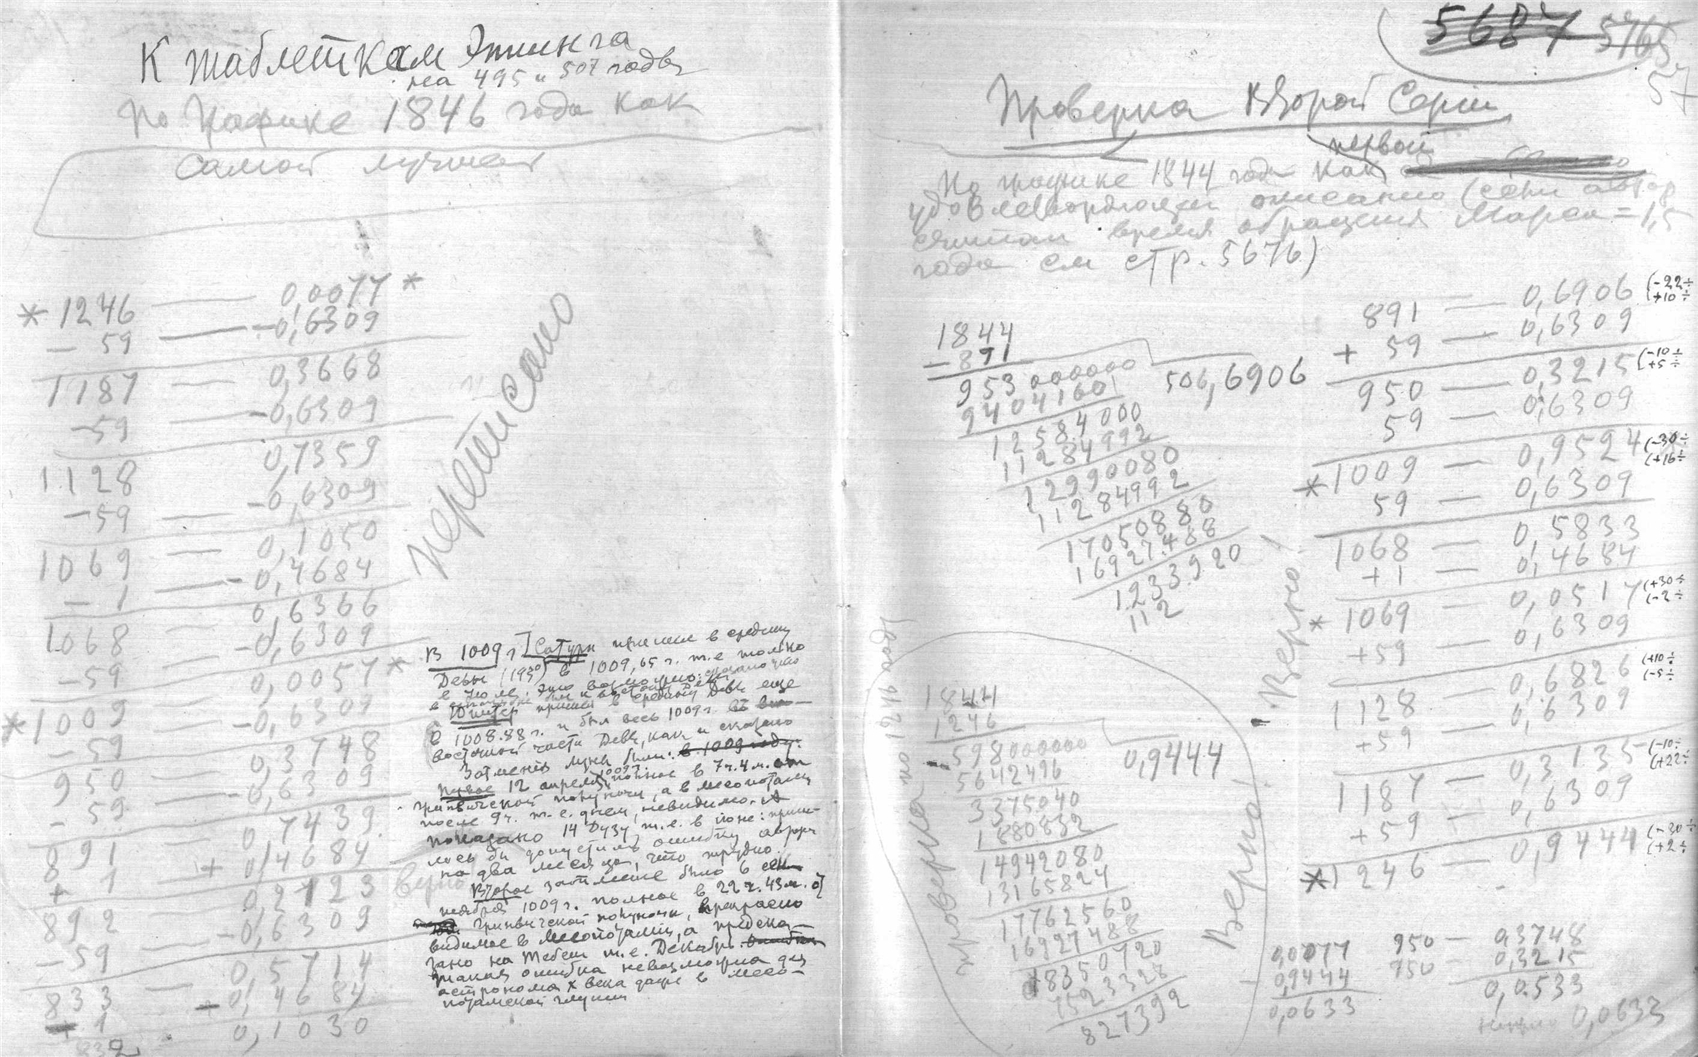 К таблеткам Эппинга
на 495 и 507 годы
По графике 1846 года как
самой лучшей
* 1246 — 0,0077 *
- 59 — -0,6309
1187 — 0,3668
-59 — -0,6309
1128 — 0,7359
-59 — -0,6309
1069 — 0,1050
- 1 — -0,4684
1068 — 0,6366
-59 — -0,6309
* 1009 — 0,0057 *
-59 — -0,6309
950 — 0,3748
-59 — -0,6309
891 — 0,7439
+ 1 + 0,4684
892 — 0,2123
-59 — -0,6309
833 — 0,5714
+ 1 + 0,4684
832 0,1030
переписано
верно
В 1009 г [Сатурн пришел в средину
Девы (193°) в 1009,65 г. т.е. только
в июле. Это возможно: указано что
Юпитер пришел в средину Девы еще
в 1008.88 г. и был весь 1009 г. в
восточной части Девы, как и сказано
Затмения луны были: в 1009 году:
Первое 12 апреля 1009 г. полное в 7 ч. 4 м. от
гринвичской полуночи, а в Месопотамии
после 9 ч. т.е. днем, невидимо. А
показано 14 Дузу, т.е. в июне: приш-
лось бы допустить ошибку автора
на два месяца, что трудно.
Второе затмение было 6
ноября 1009 г. полное в 22 ч. 43 м. от
гринвичской полуночи, прекрасно
видимое в Месопотамии, а предска-
зано на Тебет т.е. Декабрь.
такая ошибка невозможна для
астронома X века даже в месо-
потамской глуши
5687 5765
57
Проверка Второй Серии
По графике 1844 года как первой
удовлетворяющей описанию (если автор
считал время обращения Марса = 1,5
года см стр. 5676)
1844
-891
953000000 506,6906
9404160
12584000
11284992
12990080
11284992
17050880
16927488
1233920
112
891 — 0,6906 (-22÷
(+10÷
+ 59 — 0,6309
950 — 0,3215 (-10÷
(+5÷
59 — 0,6309
* 1009 — 0,9524 (-30÷
(+16÷
59 — 0,6309
1068 — 0,5833
+1 — 0,4684
* 1069 — 0,0517 (+30÷
(-2÷
+59 — 0,6309
1128 — 0,6826 (+10÷
(-5÷
+59 — 0,6309
1187 — 0,3135 (-10÷
(+22÷
+59 — 0,6309
* 1246 — 0,9444 (-30÷
(+2÷
Верно!
проверка по 1246 году
1844
1246
598000000 0,9444
5642496
3375040
1880832
14942080
13165824
17762560
16927488
8350720
7523328
827392
Верно!
0,0077
0,9444
0,0633
950 — 0,3748
950 — 0,3215
0,0533
0,0633